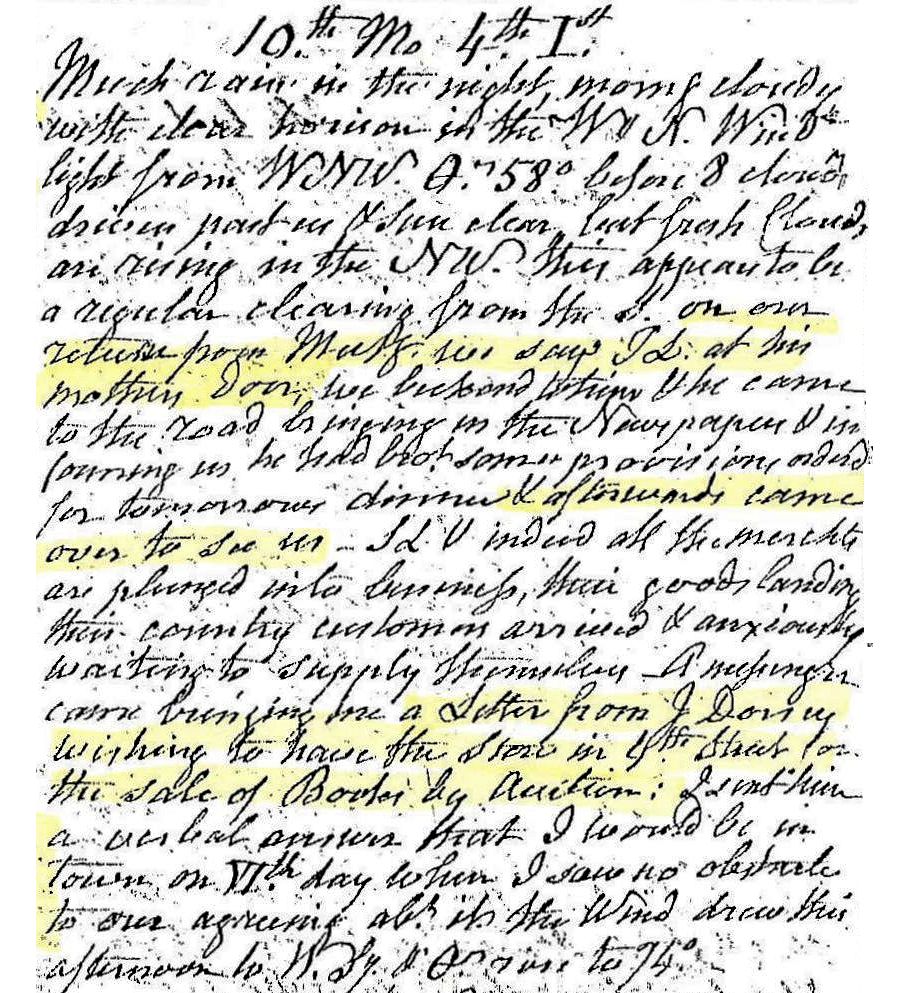 10.th Mo 4th I.st
Much rain in the night, morng cloudy
with clear horison in the W & N. Wind
light from WNW. 58.° before 8 clouds
driven past us & Sun clear, but fresh Clouds
are rising in the NW. this appears to be
a regular clearing from the S. on our
return from we saw at his
mothers Door, we beckond to him & he came
to the road bringing us the Newspapers & in
forming us he had brot some provisions orderd
for tomorrows dinner & afterwards came
over to see us - & indeed all the merchts
are plunged into business, their goods landing
their country customers arrived & anxiously
waiting to supply themselves - A messenger
came bringing me a Letter from J Dorsey
wishing to have the Store in 4th Street for
the sale of Books by Auction: I sent him
a verbal answer that I would be in
town on VIth day when I saw no obstacle
to our agreeing abt. it. the Wind drew this
afternoon to W. Sy. & rose to 74°